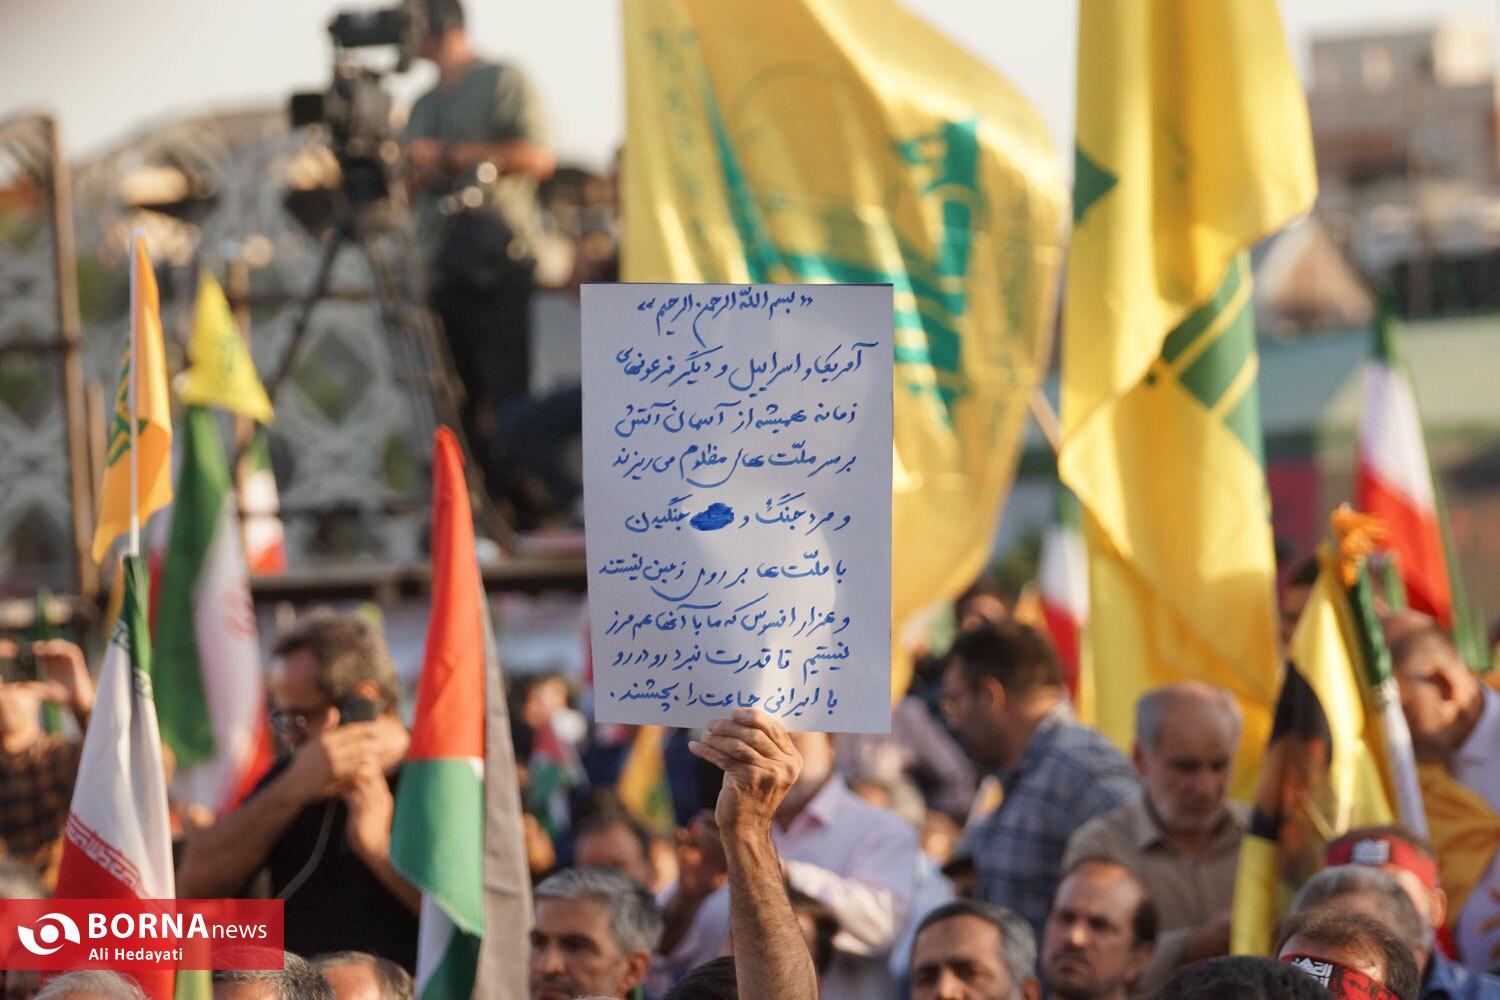 «بسم الله الرحمن الرحیم»
آمریکا و اسراییل و دیگر فرعونهای
زمانه همیشه از آسمان آتش
بر سر ملّت های مظلوم می ریزند
و مرد جنگ و جنگیدن
با ملّت ها بر روی زمین نیستند
و هزار افسوس که ما با آنها هم مرز
نیستیم تا قدرت نبرد رو در رو
با ایرانی جماعت را بچشند.
BORNAnews
Ali Hedayati